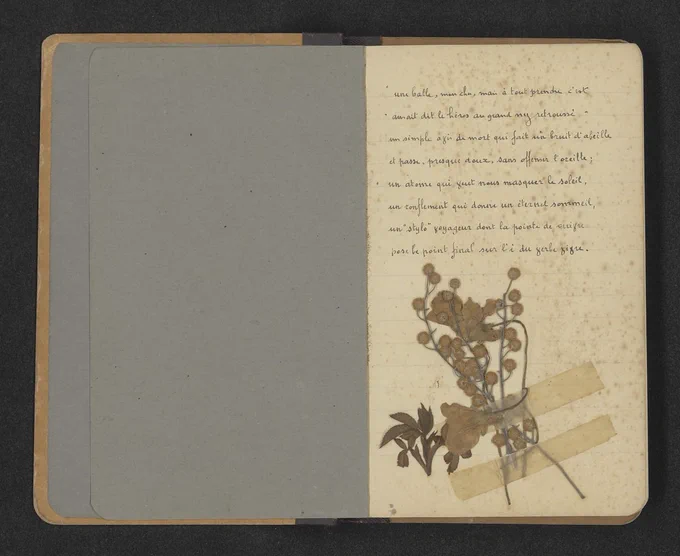 " une balle, mon cher, mais à tout prendre c'est
aurait dit le héros au grand nez retroussé -
un simple avis de mort qui fait un bruit d'abeille
et passe, presque doux, sans offenser l'oreille ;
un atome qui veut nous masquer le soleil,
un ronflement qui donne un éternel sommeil,
un "stylo" voyageur dont la pointe de cuivre
pose le point final sur l'i du verbe vivre.